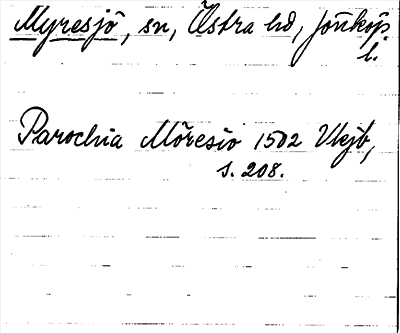 Myresjö, sn, Östra hd, Jönköp.
l.
Parochia Möresiö 1502 Vkjb,
s. 208.